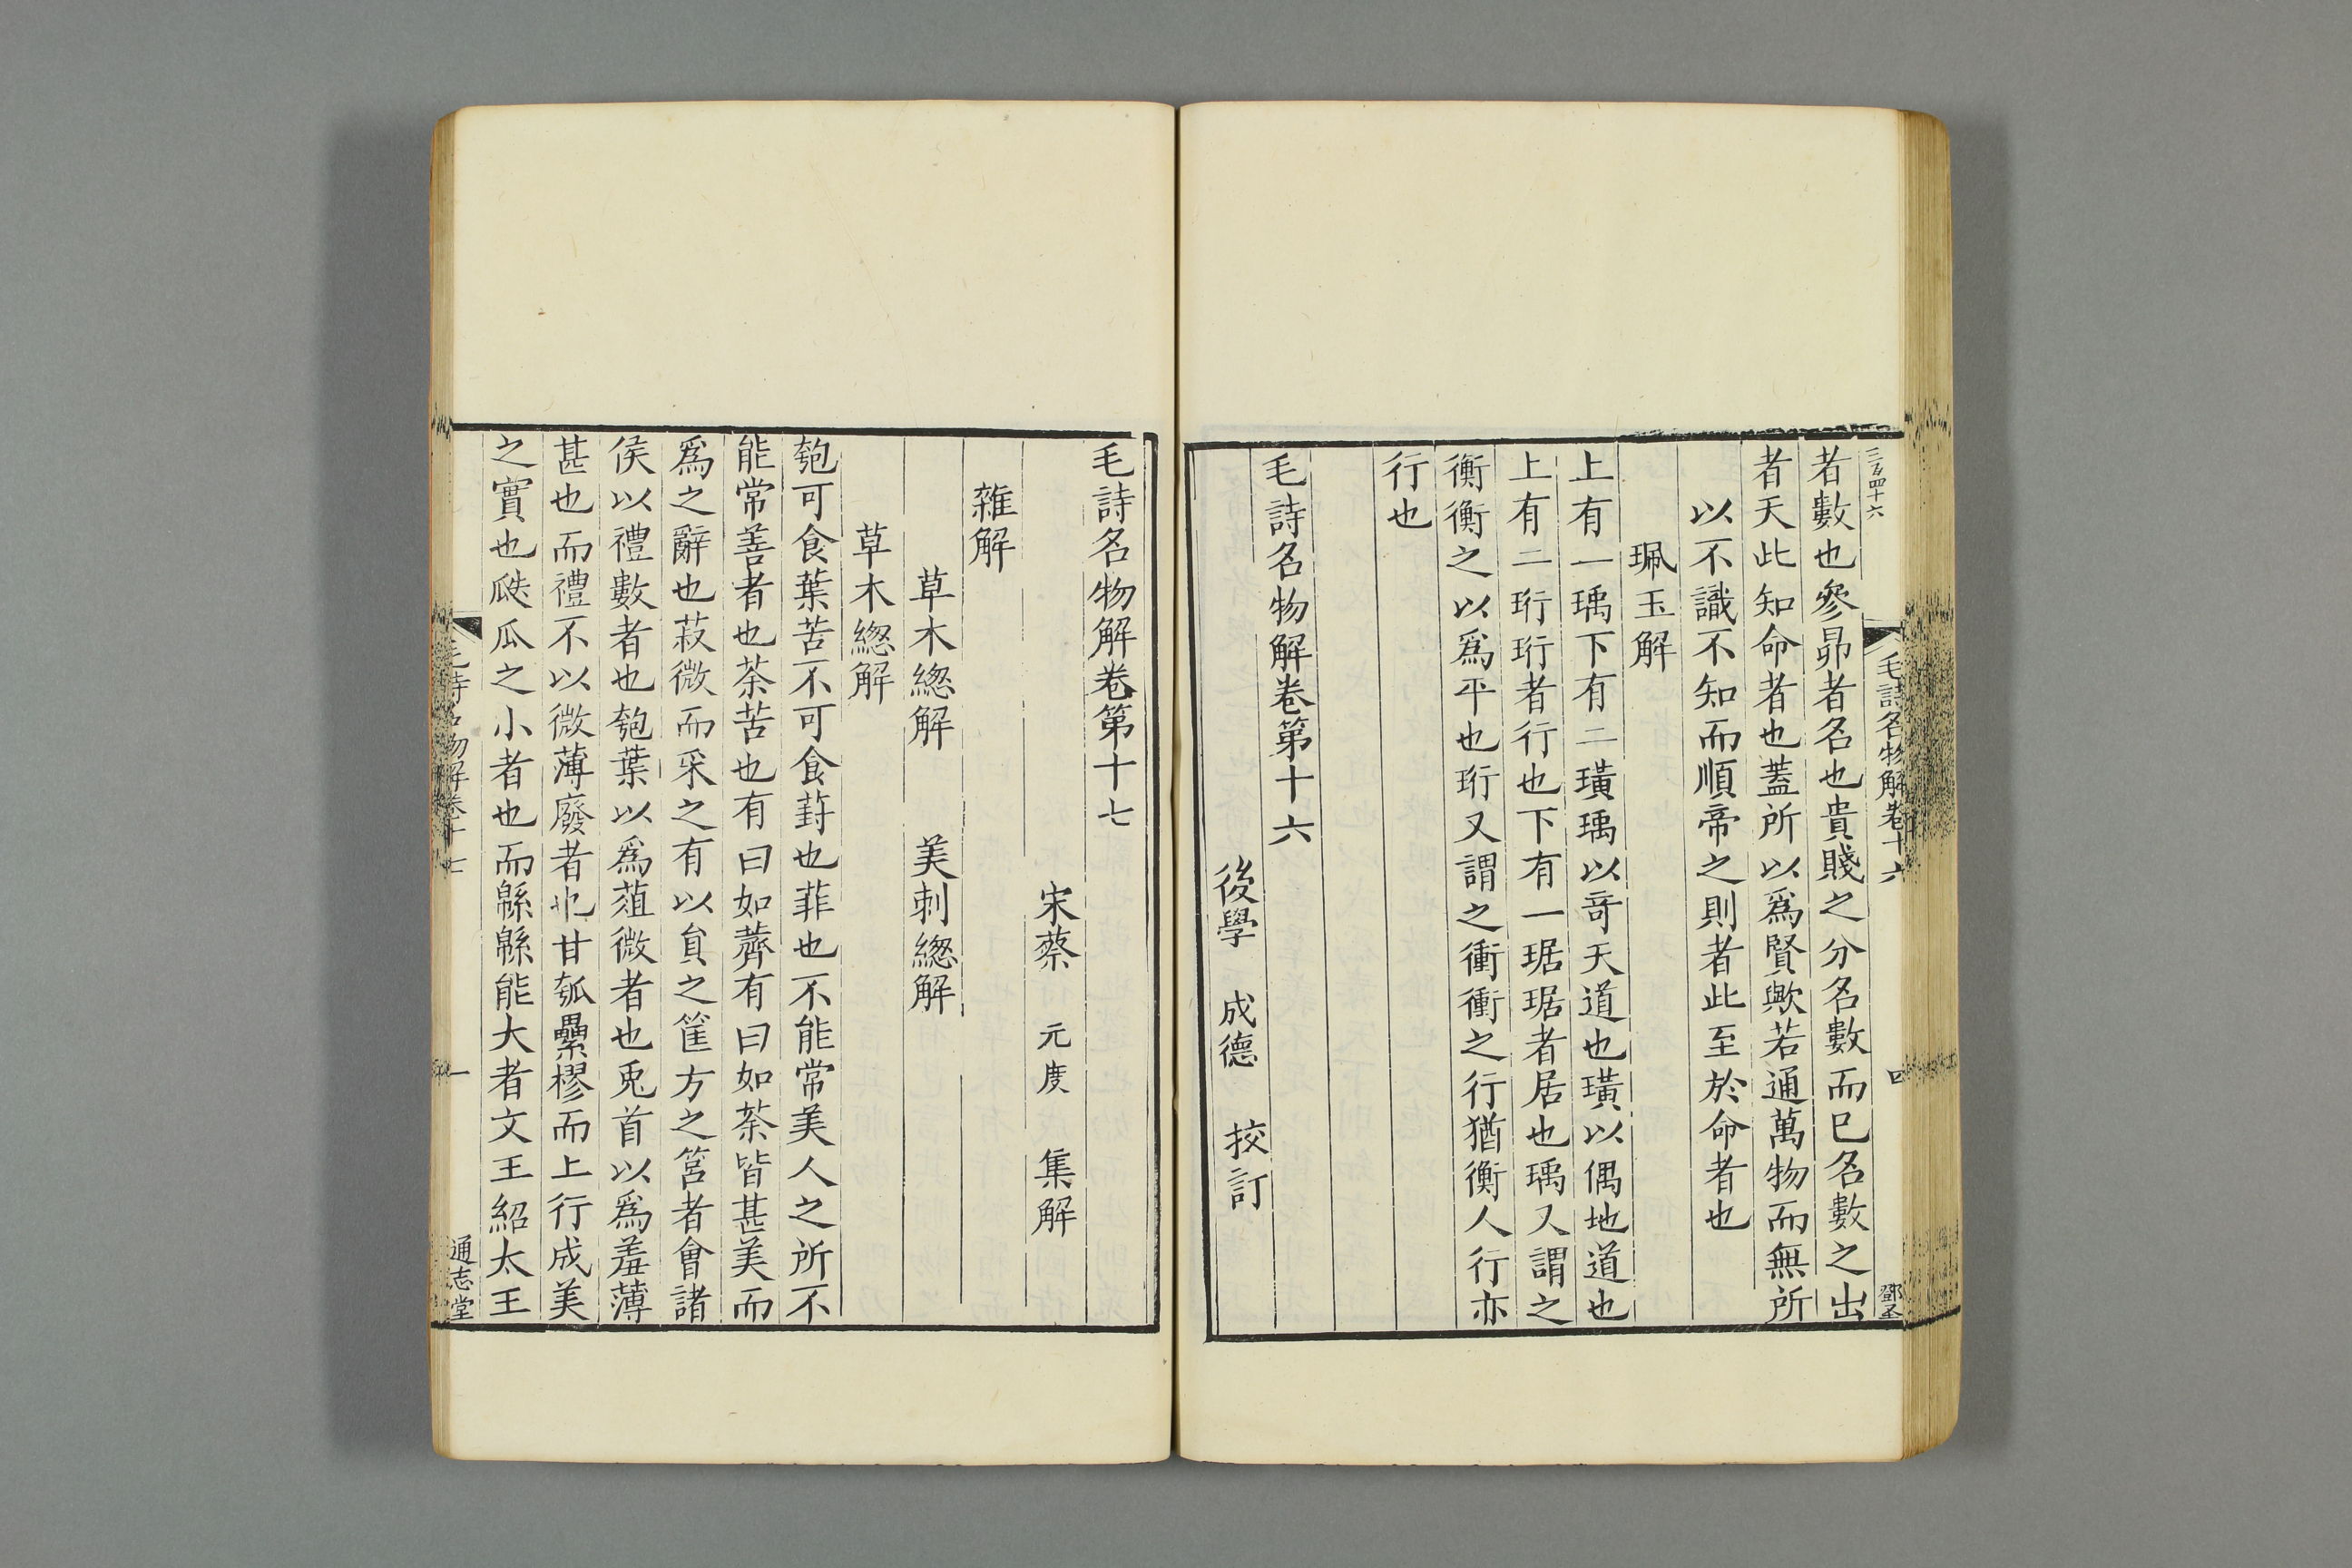 三百四十六
毛詩名物解卷十六
四
鄧圣
者數也參昴者名也貴賤之分名數而已名數之出
者天此知命者也蓋所以爲賢歟若通萬物而無所
以不識不知而順帝之則者此至於命者也
珮玉解
上有一瑀下有二璜瑀以竒天道也璜以偶地道也
上有二珩珩者行也下有一琚琚者居也瑀又謂之
衡衡之以爲平也珩又謂之衝衝之行猶衡人行亦
行也
毛詩名物解卷第十六
後學 成德 挍訂
毛詩名物解卷第十七
宋蔡 元度 集解
雜解
草木緫解 美刺緫解
草木緫解
匏可食葉苦不可食葑也菲也不能常美人之所不
能常善者也荼苦也有曰如薺有曰如荼皆甚美而
爲之辭也菽微而采之有以貟之筐方之筥者會諸
侯以禮數者也匏葉以爲菹微者也兎首以爲羞薄
甚也而禮不以微薄廢者也甘瓠纍樛而上行成美
之實也瓞瓜之小者也而緜緜能大者文王紹太王
毛詩名物解卷十七
一
通志堂